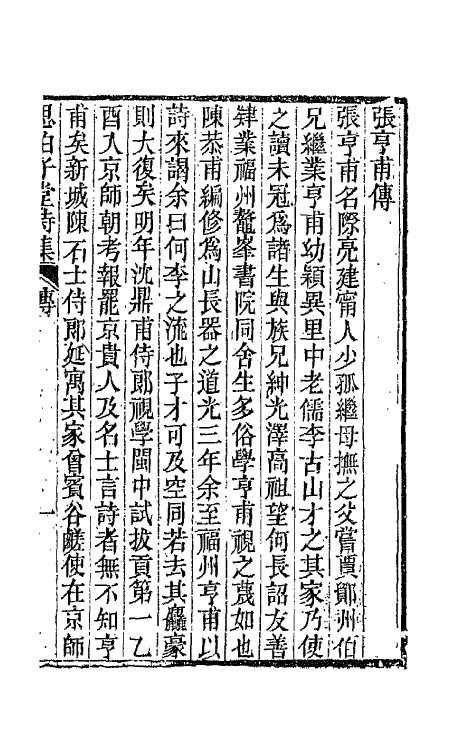 張亨甫傳
張亨甫名際亮建甯人少孤繼母撫之父嘗賈鄽州伯
兄繼業亨甫幼穎異里中老儒李古山才之其家乃使
之讀未冠爲諸生與族兄紳光澤高祖望何長詔友善
肄業福州鼇峯書院同舍生多俗學亨甫視之蔑如也
陳恭甫編修爲山長器之道光三年余至福州亨甫以
詩來謁余曰何李之流也子才可及空同若去其麤豪
則大復矣明年沈鼎甫侍郞視學閩中試拔貢第一乙
酉入京師朝考報罷京貴人及名士言詩者無不知亨
甫矣新城陳石士侍郞延寓其家曾賓谷鹺使在京師
思伯子堂詩集 傳 一